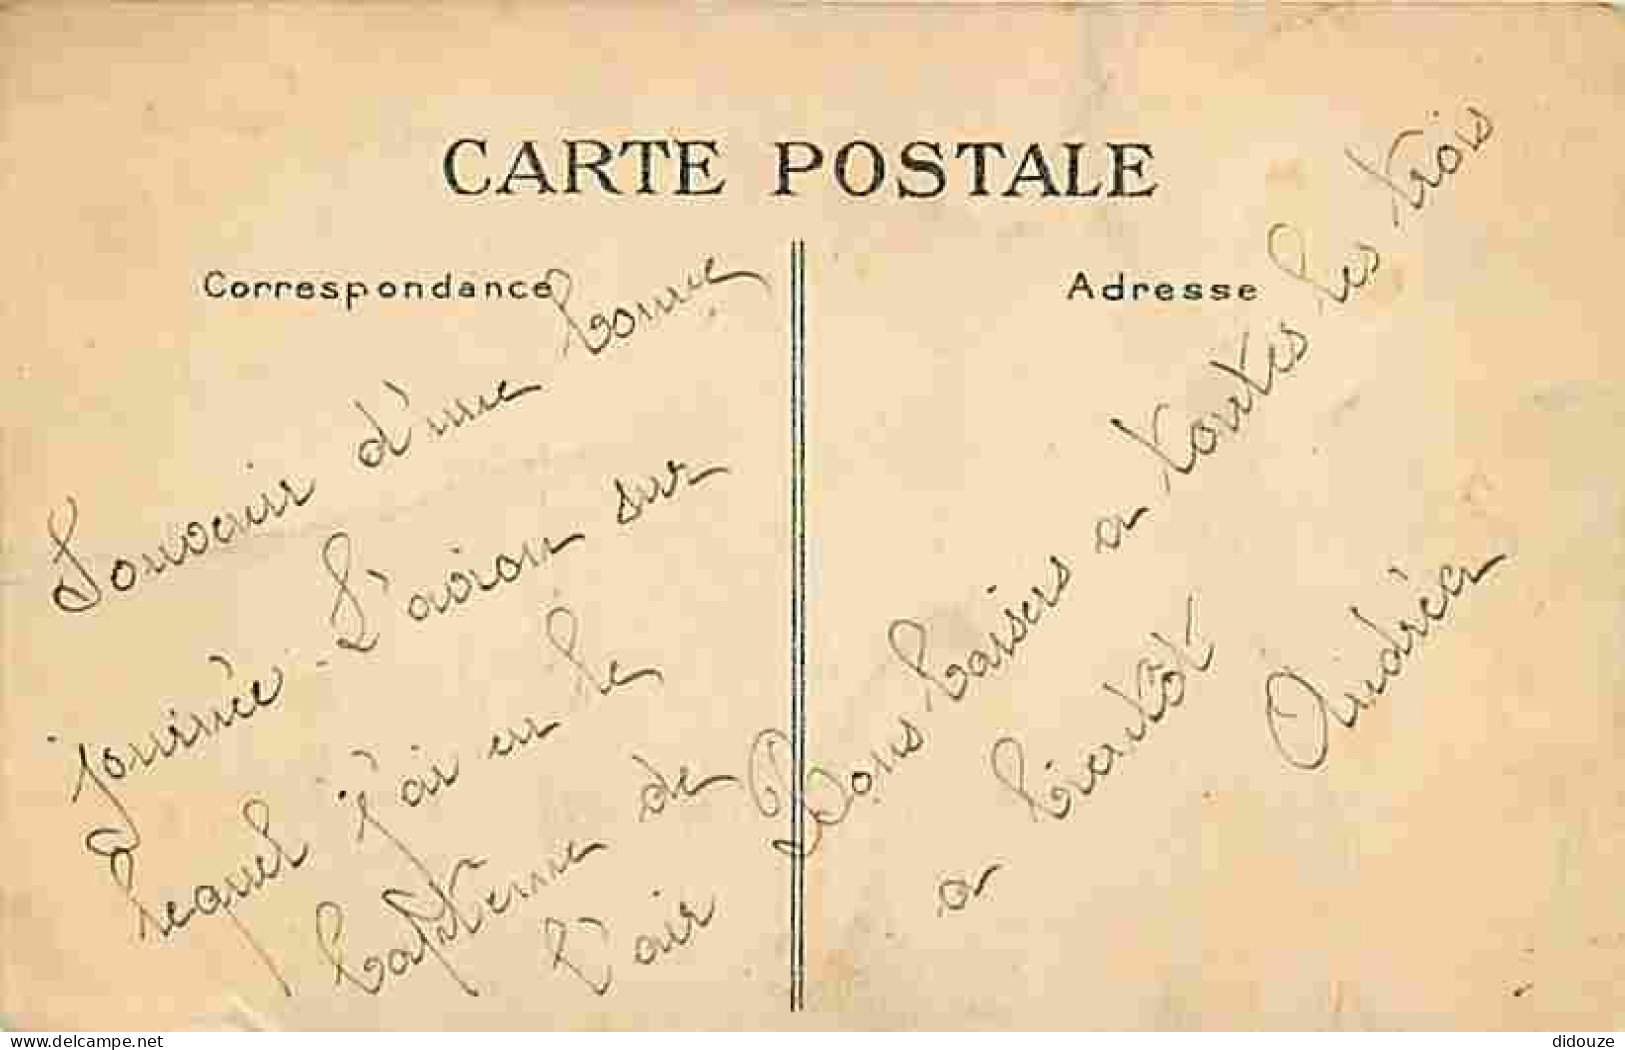 CARTE POSTALE
Correspondance
Adresse
Souvenir d'une bonne
journée. L'avion sur
lequel j'ai eu le
baptème de
l'air
Bons baisers a toutes les trois
a bientôt
Andréa
www.delcampe.net
didouze